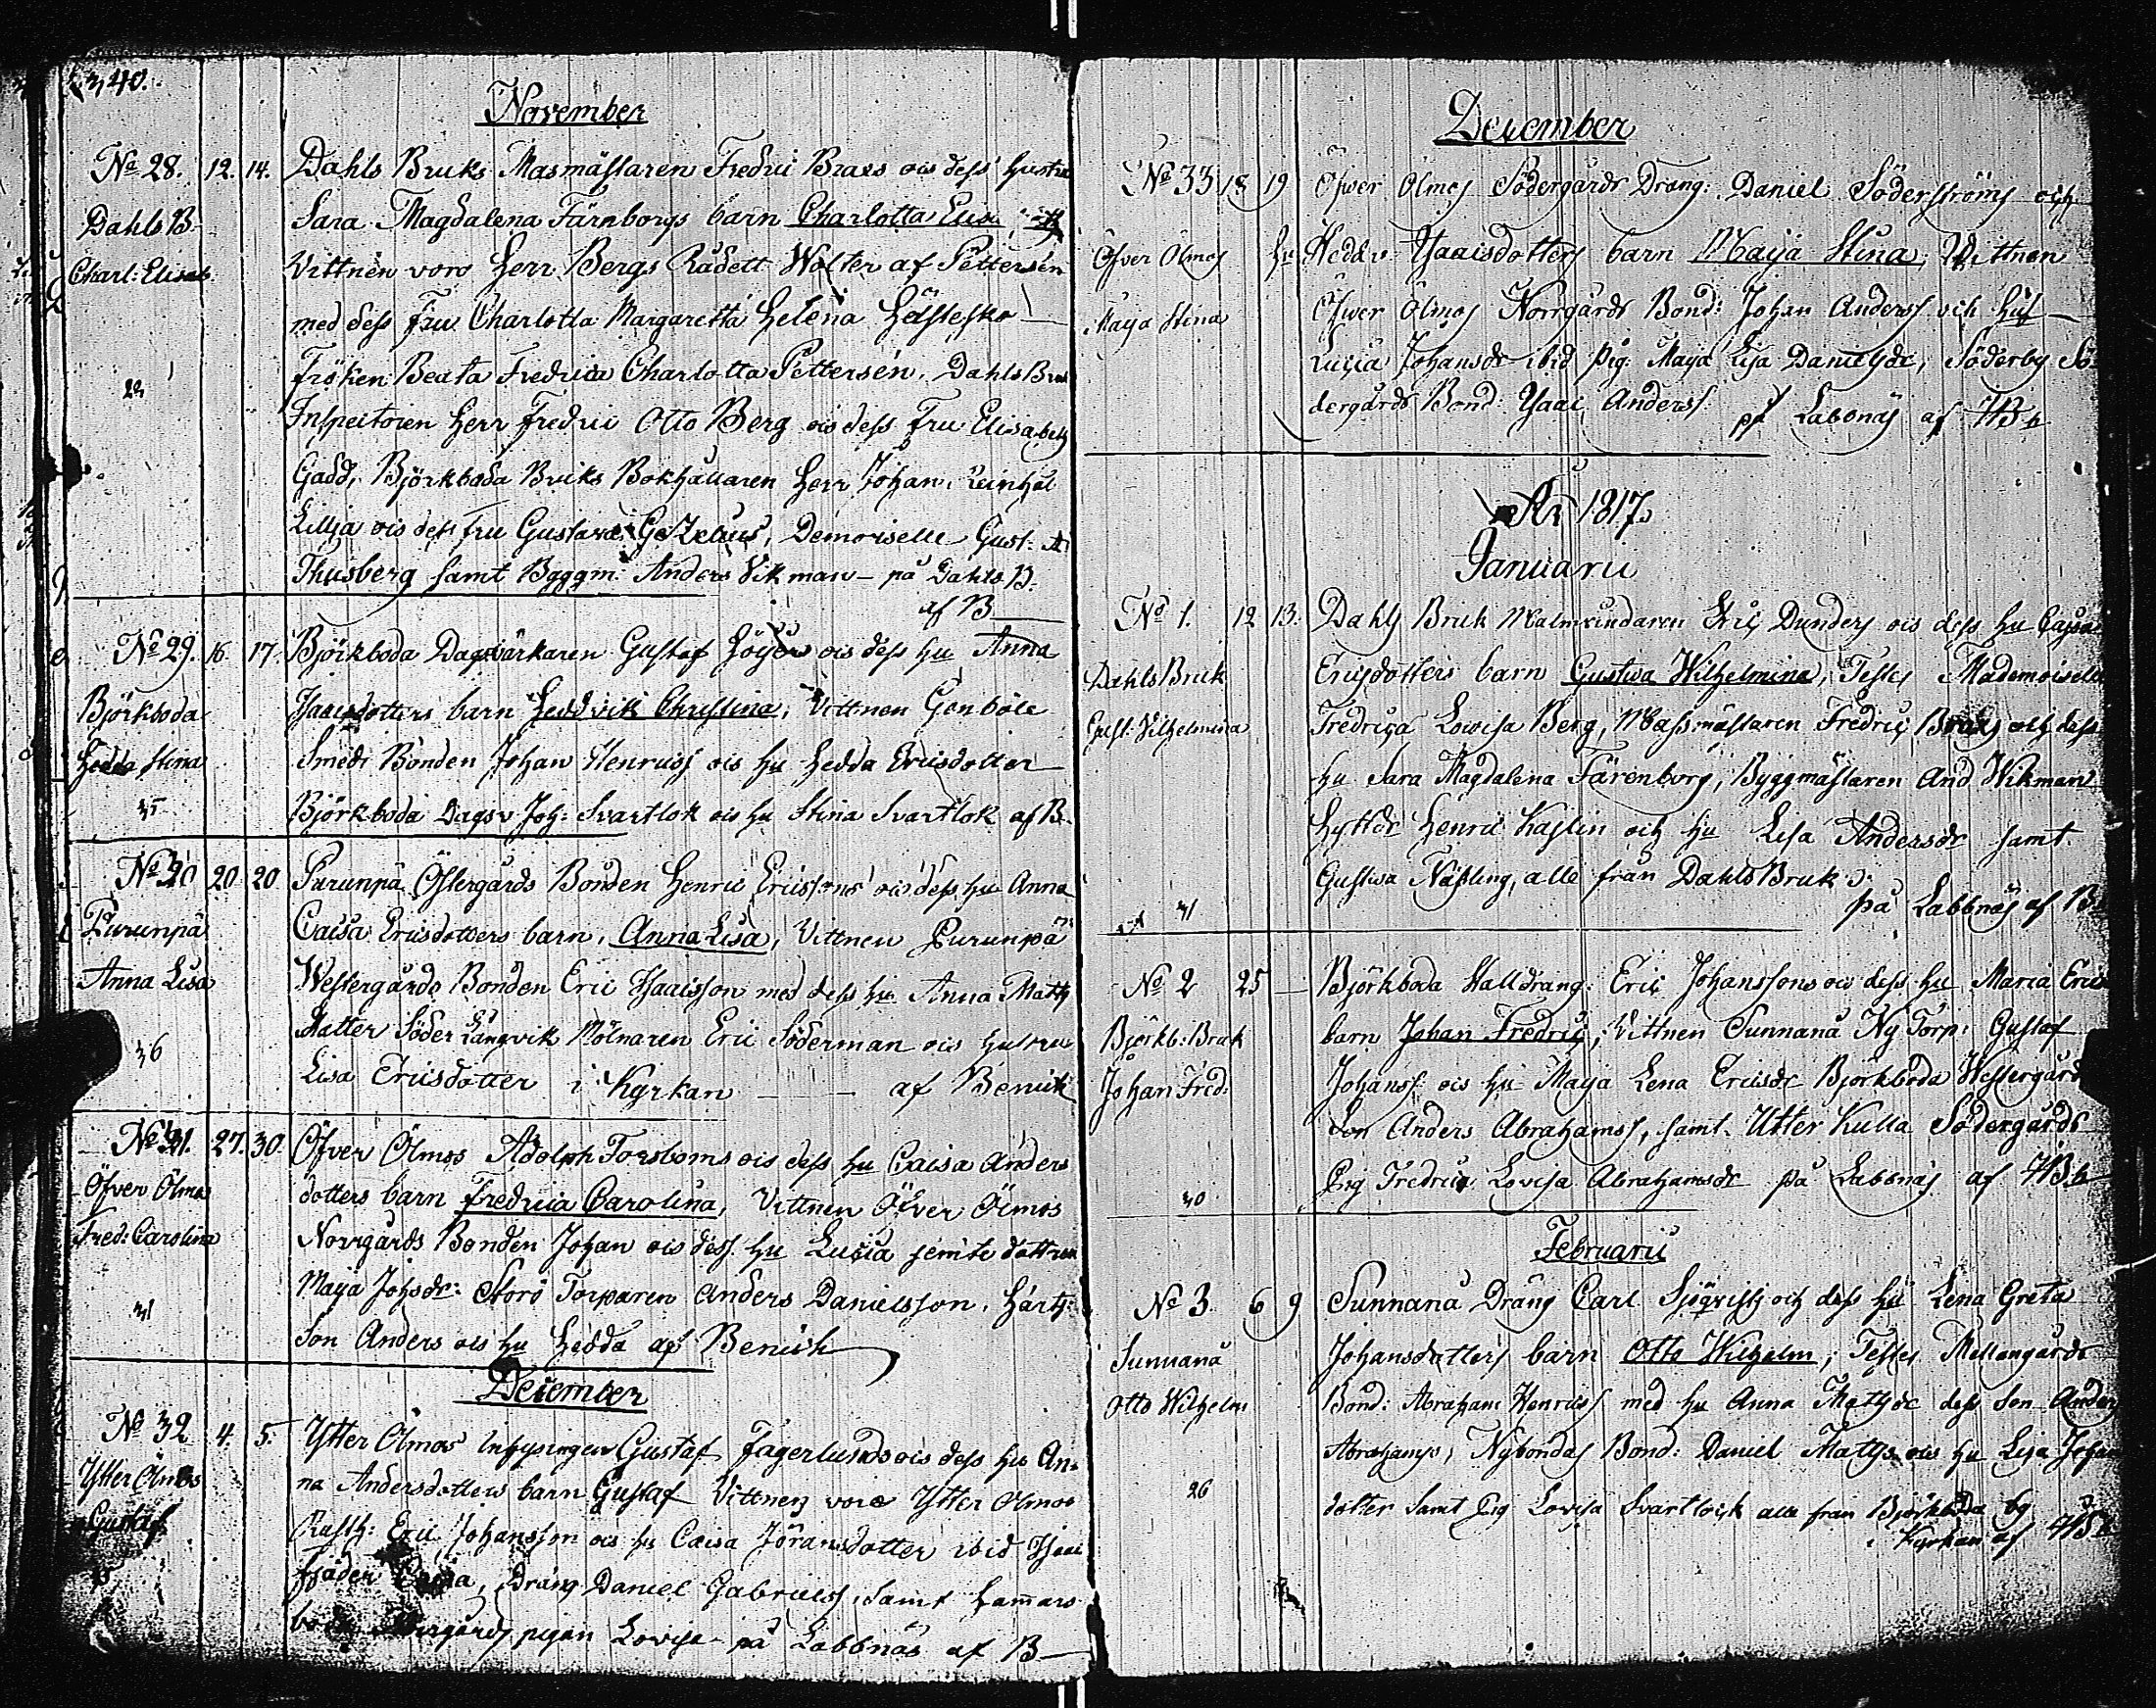 340.
November
No 28. 12. 14. Dahls Bruks Masmästaren Fredric Braxs ocs dess hustru
Dahls B. Sara Magdalena Färnborgs barn Charlotta Elis
Charl: Elisab Vittnen voro Herr Bergs Rådett Wolter af Pettersén
med dess Fru Charlotta Margaretta Helena Hästesko
Fröken Beata Fredrica Charlotta Pettersén, Dahls Bru
Inspectoren Herr Fredric Otto Berg ocs dess Fru Elisabeth
Gadd, Björkboda Bruks Bokhållaren Herr Johan Reinhol
Lillja ocs dess fru Gustava Gezelius, Demoiselle Gust: A
Thusberg samt Byggm: Anders Vikman – på Dahls B.
af B
No 29. 16. 17. Björkboda Dagsvärkaren Gustaf Höijers ocs dess hu Anna
Björkboda Isaacsdotters barn Heddvik Christina, Vittnen Genböle
Hedda Stina Smeds Bonden Johan Henricss ocs hu Hedda Ericsdotter
35 Björkboda Dagsv Joh: Svartlok ocs hu Stina Svartlok af B.
No 30 20 20 Purunpä Östergårds Bonden Henric Ericssons ocs dess hu Anna
Purunpä Caisa Ericsdotters barn, Anna Lisa, Vittnen Purunpä
Anna Lisa Westergårds Bonden Eric Isaacsson med dess hu Anna Math
36 Datter Söder Långvik Mölnaren Eric Söderman ocs hustru
Lisa Ericsdotter i Kyrkan — af Benich
No 31. 27. 30. Öfver Ölmos Adolph Forsboms ocs dess hu Caisa Anders
Öfver Ölmos dotters barn Fredrica Carolina, Vittnen Öfver Ölmos
Fred: Carolina Norrgårds Bonden Johan ocs dess hu Lucia jemte dottren
31 Maija Johsdr: Storö Torparen Anders Danielsson,
Son Anders ocs hu Hedda af Benich
December
No 32 4. 5. Ytter Ölmos Inhysingen Gustaf Fagerlunds ocs dess hu An-
Ytter Ölmos na Andersdotters barn Gustaf Vittnen voro Ytter Ölmos
Gustaf Rusth: Eric Johansson ocs hu Caisa Jöransdotter ibid Isaac
Dräng Daniel Gabrielss, samt Hammars
pigan Lovisa på Labbnäs af B
December
No 33 18 19 Öfwer Ölmos Södergårds Dräng: Daniel Söderströms och
Öfver Ölmos hu Hedda Isaacsdotters barn Maija Stina; Vittnen
Maija Stina Öfwer Ölmos Norrgårds Bond: Johan Anderss och hus
Lucia Johansdr ibid pig: Maija Lisa Danielsdr, Söderby Sö-
dergårds Bond: Isaac Anderss. på Labbnäs af HB
År 1817
Januarii
No 1. 12 13. Dahls Bruk Malmvindaren Eric Dunders ocs dess hu Cajsa
Dahls Bruk Ericsdotters barn Gustava Wilhelmina, Testes Mademoiselle
Gust: Vilhelmina Fredrica Lovisa Berg, Massmästaren Fredric Braxs och dess
hu Sara Magdalena Färenborg, Byggmästaren And Wikman
Hyttdr Henric Kaslin och hu Lisa Andersdr samt
Gustava Näsling, alle från Dahls Bruk
31 på Labbnäs af B
No 2 25 — Björkboda Stalldräng: Eric Johanssons ocs dess hu Maria Erics
Björkb: Bruk barn Johan Fredric; Vittnen Sunnanå Ny Torp: Gustaf
Johan Fred: Johanss ocs hu Maija Lena Ericsdr Björkboda Westergård
Son Anders Abrahamss, samt Ytter Kulla Södergårds
30 Pig Fredrica Lovisa Abrahamsdr på Labbnäs af HB
Februarii
No 3. 6 9 Sunnanå Dräng Carl Sjöqvists och dess hu Lena Greta
Sunnanå Johansdatters barn Otto Wilhelm; Testes Mellangårds
Otto Wilhelm Bond: Abraham Henricss med hu Anna Mattsdr dess Son Anders
Abrahamss, Nybondas Bond: Daniel Mattss ocs hu Lisa Johan
26 dotter samt Pig Lovisa Svartlock alla från Björkboda by
i Kyrkan af HB